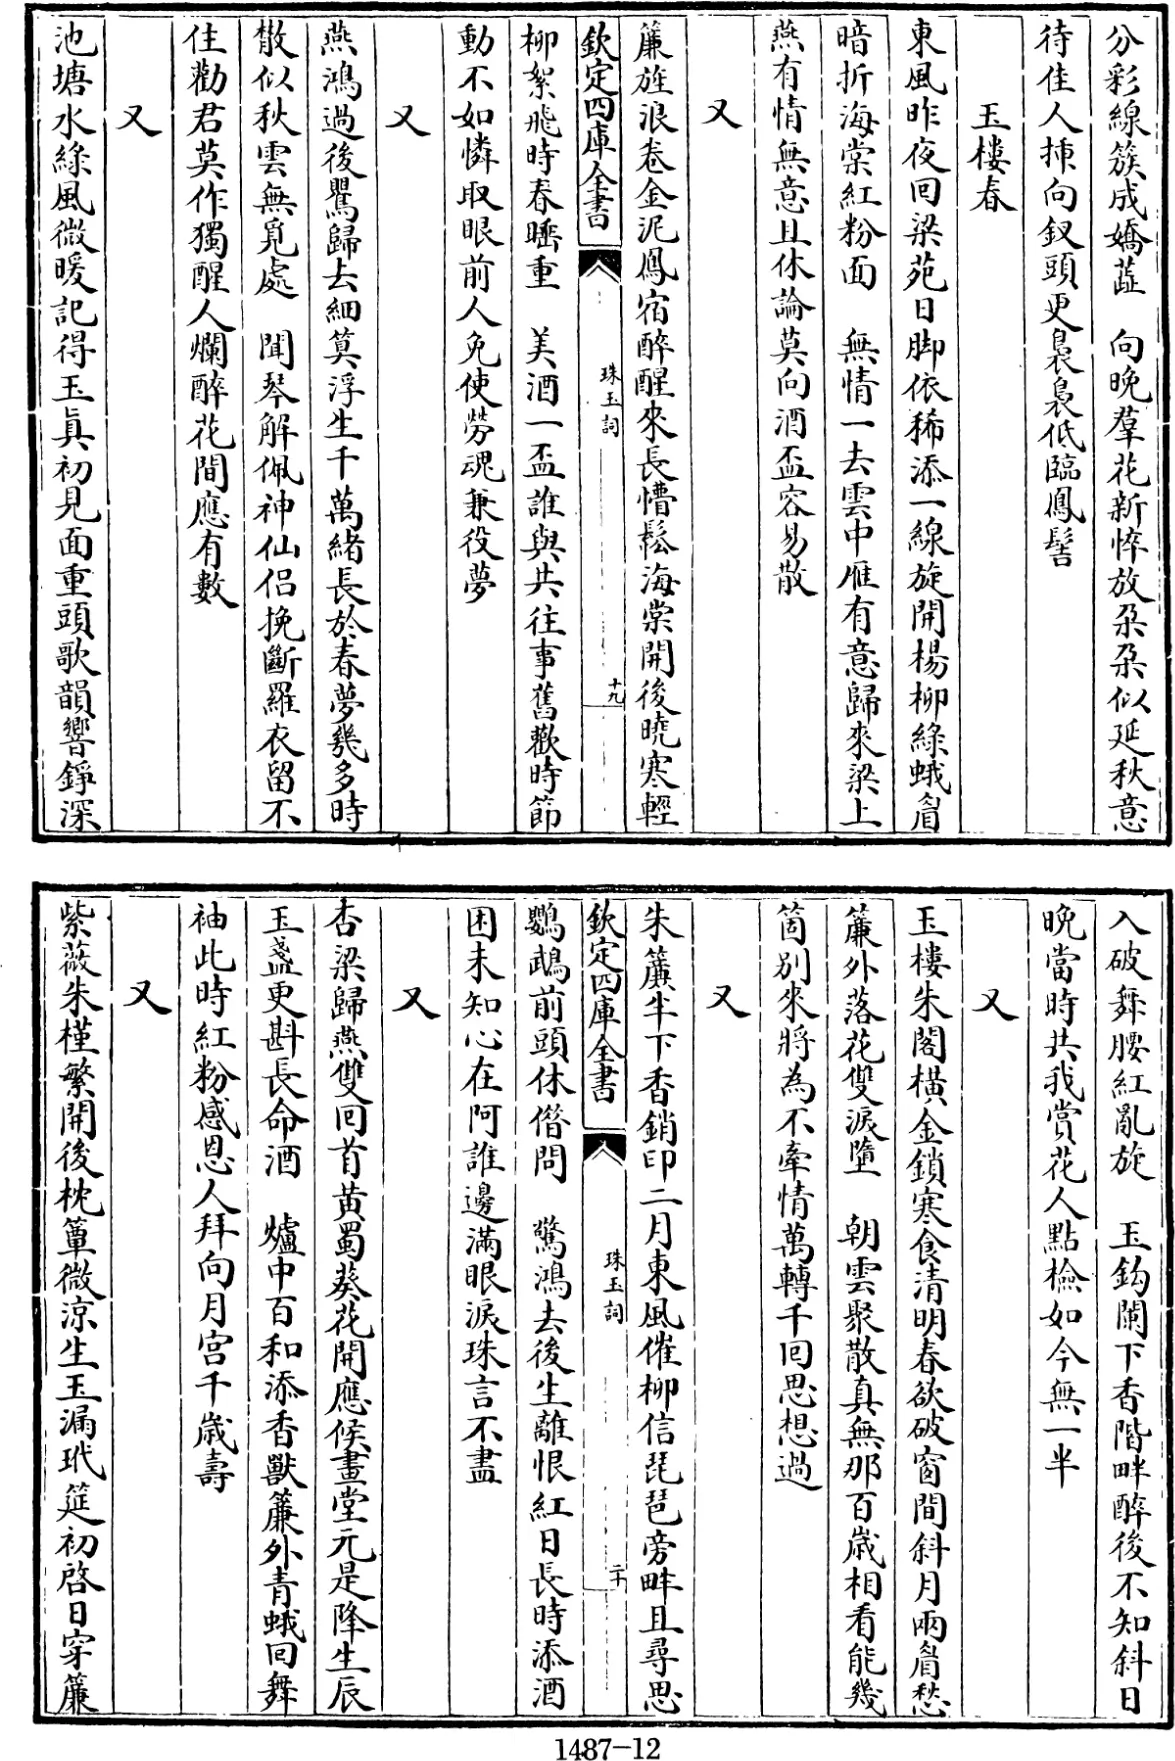 分彩線簇成嬌蕋　向晚羣花新悴放朶朶似延秋意
待佳人揷向釵頭更裊裊低臨鳳髻
玉樓春
東風昨夜回梁苑日脚依稀添一線旋開楊柳綠蛾眉
暗折海棠紅粉面　無情一去雲中雁有意歸來梁上
燕有情無意且休論莫向酒盃容易散
又
簾旌浪卷金泥鳳宿醉醒來長懵鬆海棠開後曉寒輕
欽定四庫全書
珠玉詞
十九
柳絮飛時春睡重　美酒一盃誰與共往事舊歡時節
動不如憐取眼前人免使勞魂兼役夢
又
燕鴻過後鶯歸去細算浮生千萬緒長於春夢幾多時
散似秋雲無覓處　聞琴解佩神仙侣挽斷羅衣留不
住勸君莫作獨醒人爛醉花間應有數
又
池塘水綠風微暖記得玉真初見面重頭歌韻響錚深
入破舞腰紅亂旋　玉鈎闌下香階畔醉後不知斜日
晚當時共我賞花人點檢如今無一半
又
玉樓朱閣橫金鎖寒食清明春欲破窗間斜月兩眉愁
簾外落花雙淚墮　朝雲聚散真無那百歲相看能幾
箇别來將為不牽情萬轉千回思想過
又
朱簾半下香銷印二月東風催柳信琵琶旁畔且尋思
欽定四庫全書
珠玉詞
二十
鸚鵡前頭休借問　驚鴻去後生離恨紅日長時添酒
困未知心在阿誰邊滿眼淚珠言不盡
又
杏梁歸燕雙回首黄蜀葵花開應候畫堂元是降生辰
玉盞更斟長命酒　爐中百和添香獸簾外青蛾回舞
袖此時紅粉感恩人拜向月宫千歲壽
又
紫薇朱槿繁開後枕簟微凉生玉漏玳筵初啓日穿簾
1487-12